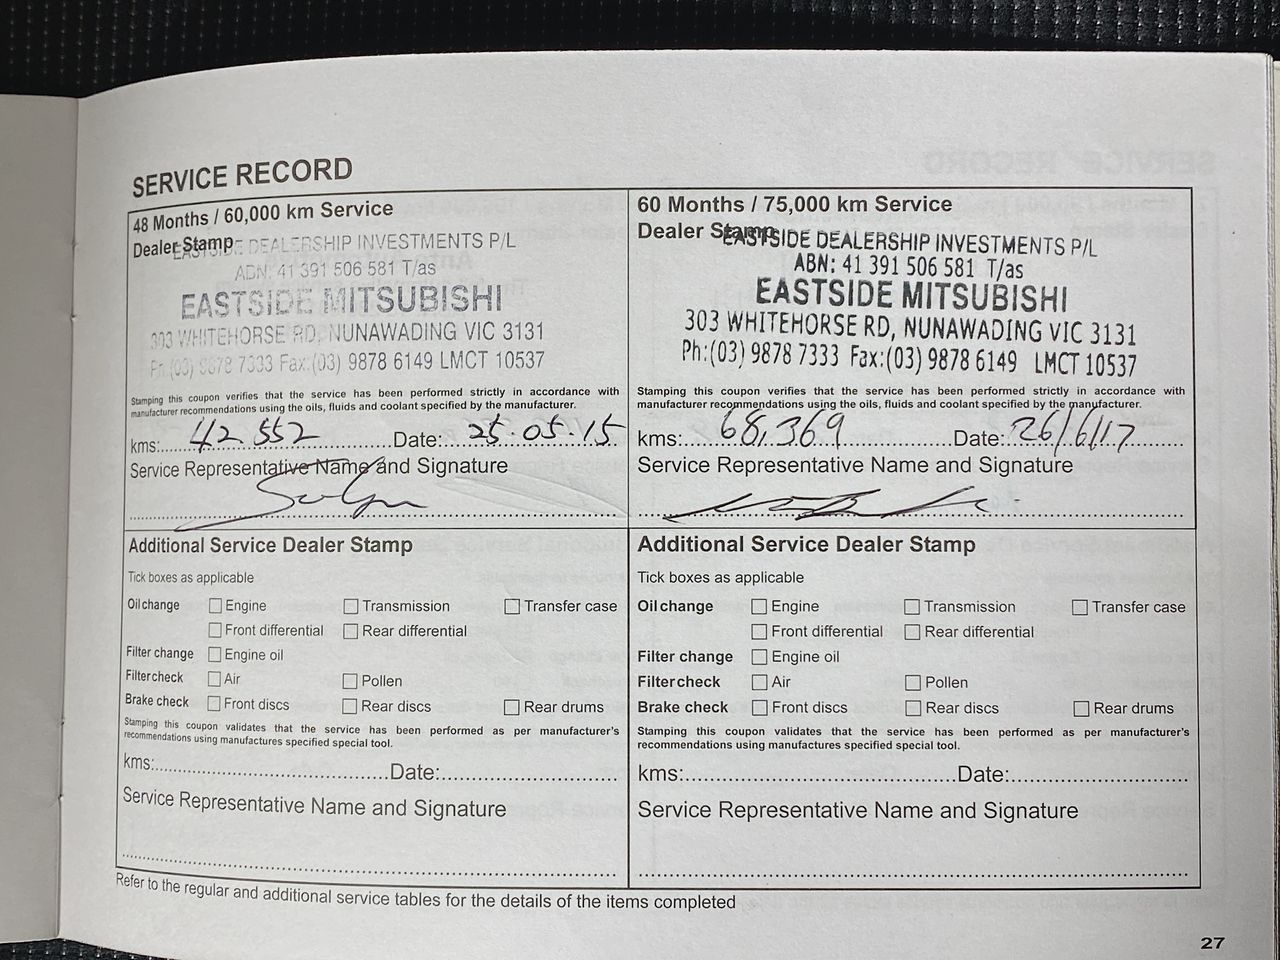 SERVICE RECORD
48 Months / 60,000 km Service
Dealer Stamp
EASTSIDE DEALERSHIP INVESTMENTS P/L
ABN: 41 391 506 581 T/as
EASTSIDE MITSUBISHI
303 WHITEHORSE RD, NUNAWADING VIC 3131
Ph:(03) 9878 7333 Fax:(03) 9878 6149 LMCT 10537
Stamping this coupon verifies that the service has been performed strictly in accordance with
manufacturer recommendations using the oils, fluids and coolant specified by the manufacturer.
kms: 42.552 Date: 25.05.15
Service Representative Name and Signature
Additional Service Dealer Stamp
Tick boxes as applicable
Oil change Engine Transmission Transfer case
Front differential Rear differential
Filter change Engine oil
Filter check Air Pollen
Brake check Front discs Rear discs Rear drums
Stamping this coupon validates that the service has been performed as per manufacturer's
recommendations using manufactures specified special tool.
kms: Date:
Service Representative Name and Signature
60 Months / 75,000 km Service
Dealer Stamp
EASTSIDE DEALERSHIP INVESTMENTS P/L
ABN: 41 391 506 581 T/as
EASTSIDE MITSUBISHI
303 WHITEHORSE RD, NUNAWADING VIC 3131
Ph:(03) 9878 7333 Fax:(03) 9878 6149 LMCT 10537
Stamping this coupon verifies that the service has been performed strictly in accordance with
manufacturer recommendations using the oils, fluids and coolant specified by the manufacturer.
kms: 68,369 Date: 26/6/17
Service Representative Name and Signature
Additional Service Dealer Stamp
Tick boxes as applicable
Oil change Engine Transmission Transfer case
Front differential Rear differential
Filter change Engine oil
Filter check Air Pollen
Brake check Front discs Rear discs Rear drums
Stamping this coupon validates that the service has been performed as per manufacturer's
recommendations using manufactures specified special tool.
kms: Date:
Service Representative Name and Signature
Refer to the regular and additional service tables for the details of the items completed
27